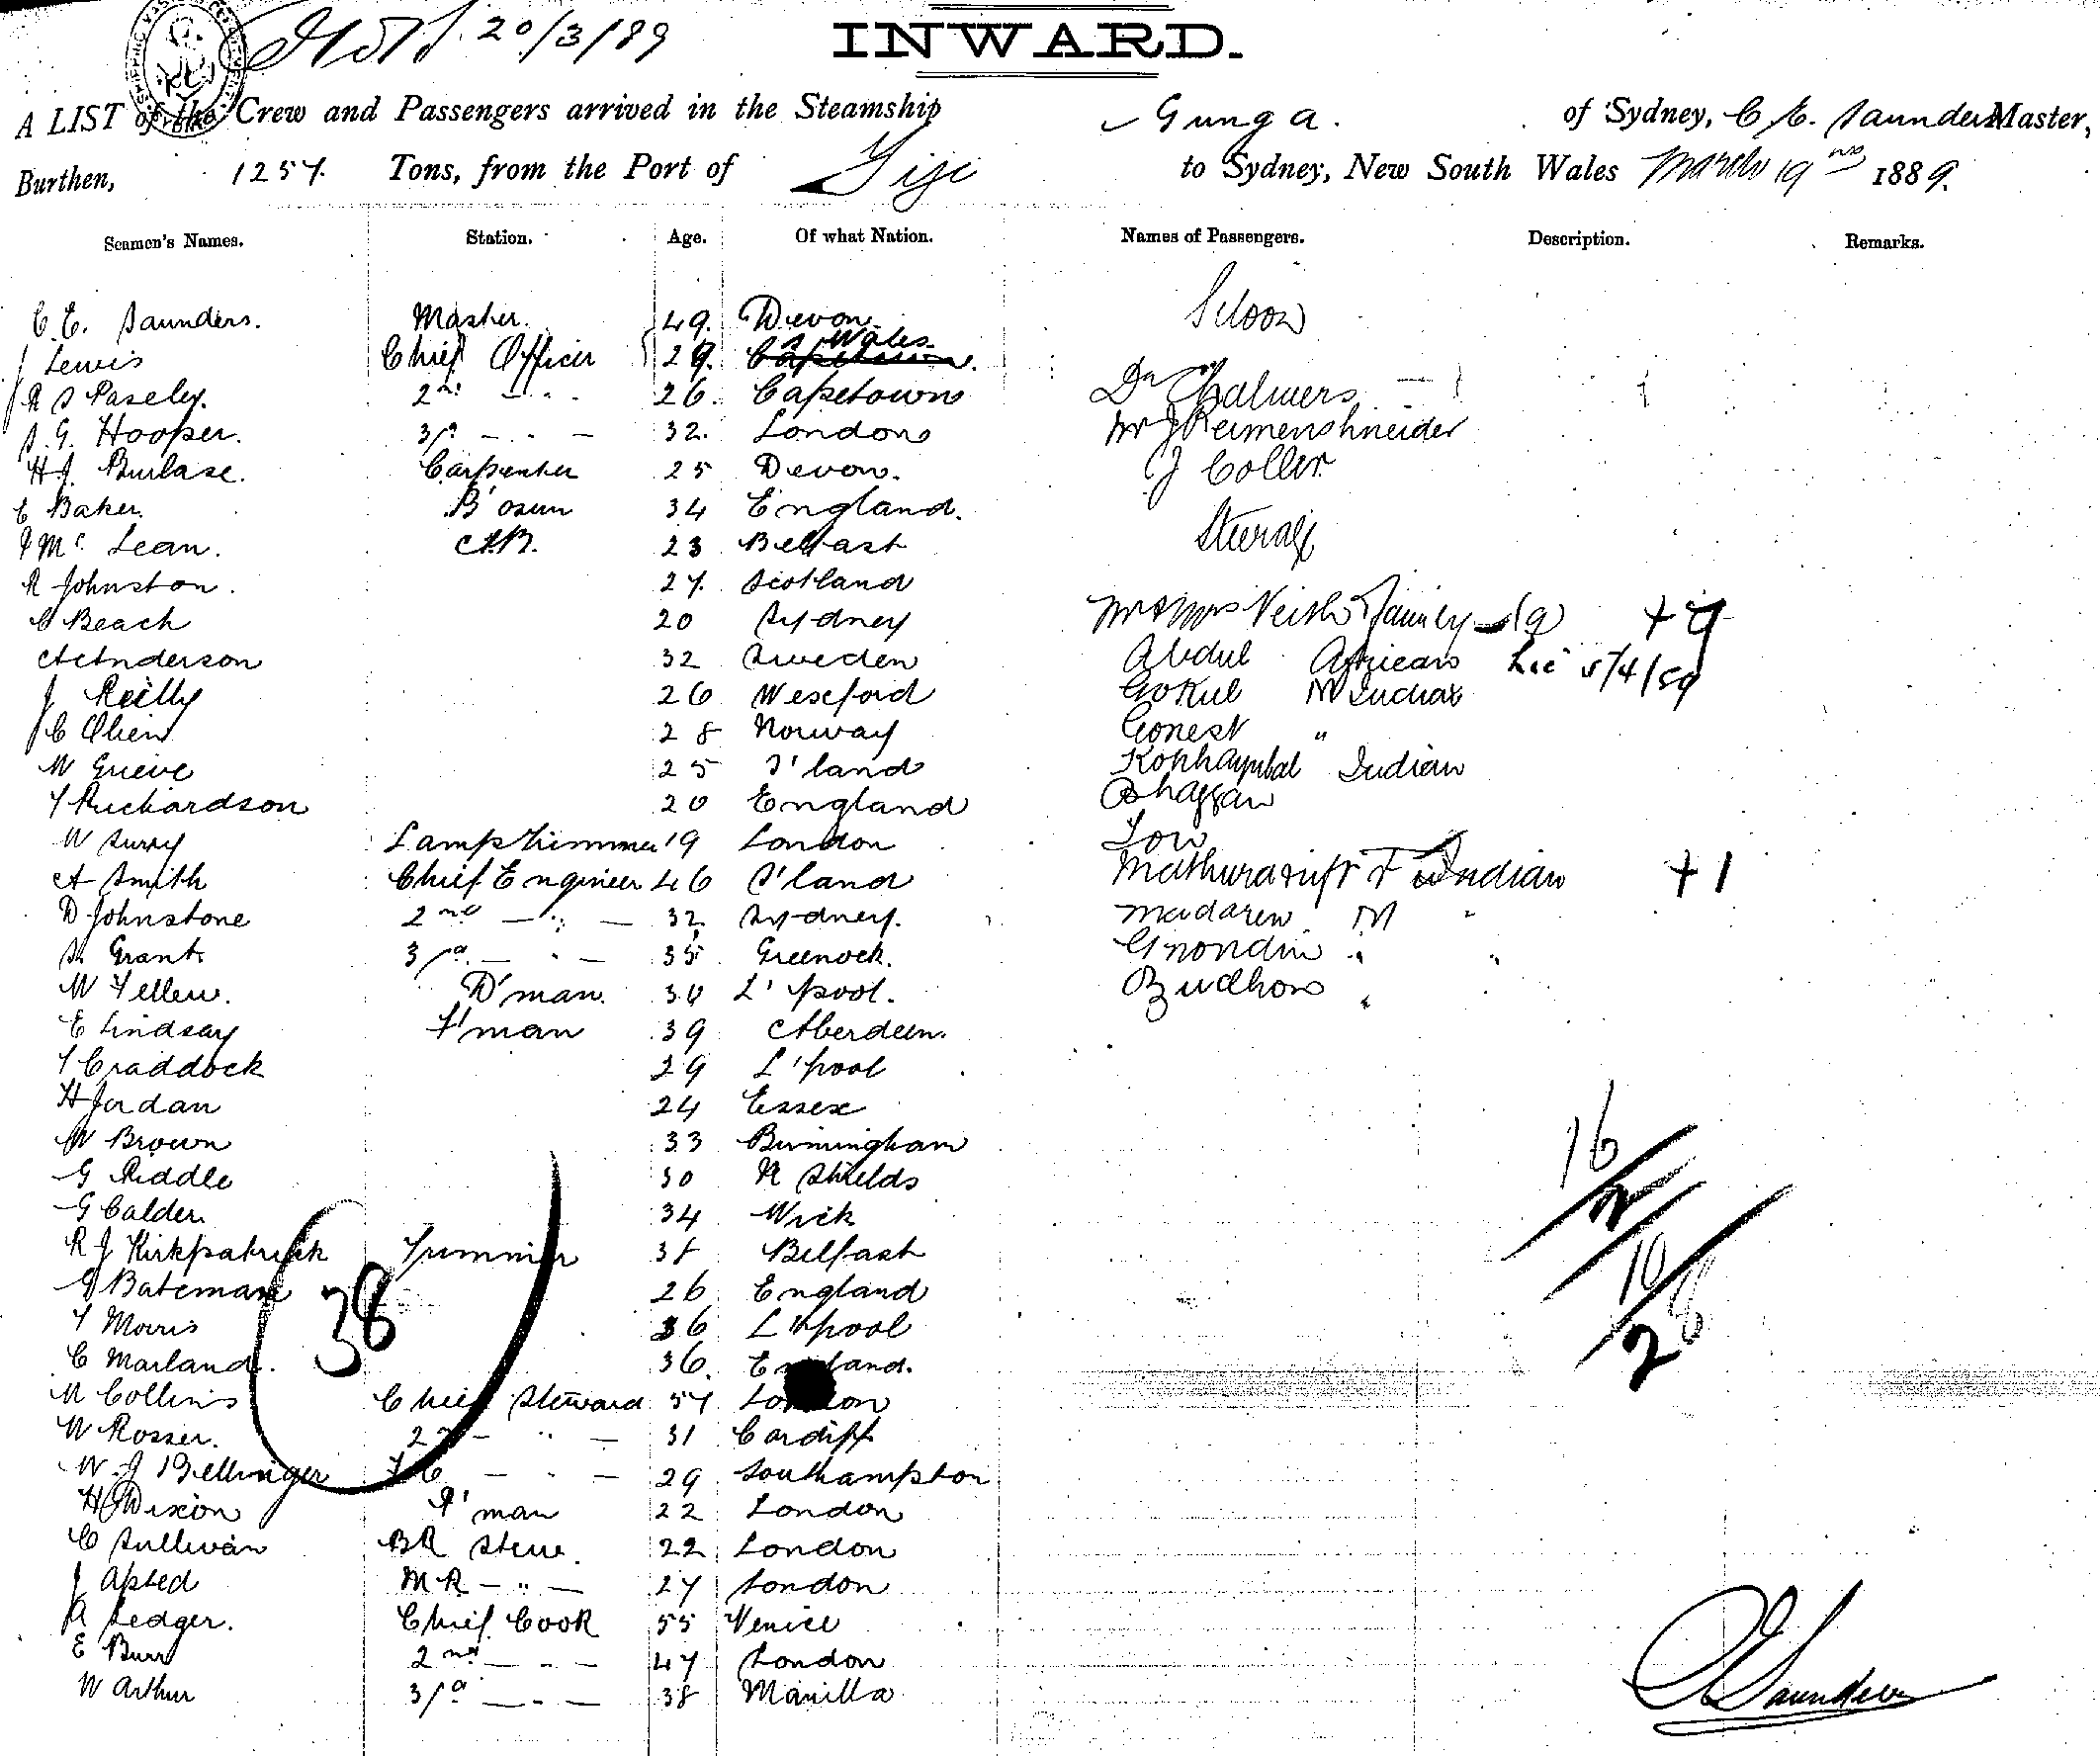 20/3/89
INWARD.
A LIST of the Crew and Passengers arrived in the Steamship Gunga. of Sydney, C. E. Saunders Master,
Burthen, 1257. Tons, from the Port of Fiji to Sydney, New South Wales March 19 1889.
Seamen's Names. Station. Age. Of what Nation. Names of Passengers. Description. Remarks.
Saloon
C. E. Saunders. Master. 49. Devon.
S Wales
J Lewis Chief Officer 29. Capetown.
R S Paseley. 2nd " 26. Capetown Dr Chalmers
S. G. Hooper. 3rd " 32. London Mr J Reimenshneider
H. J. Burlase. Carpenter 25 Devon. J Coller
E Baker. B'osun 34 England.
J Mc Lean. A.B. 23 Belfast Steerage
R Johnston. 27. Scotland
C Beach 20 Sydney Mr & Mrs Keith & Family (9) + 7
A Anderson 32 Sweden Abdul African Lic 5/4/89
J Reilly 26 Wexford Gokul M Indian
J C Olsen 28 Norway Gonest "
W Grieve 25 S'land Indian
T Richardson 20 England Bhaggan
W Surry Lamptrimmer 19 London Low
A Smith Chief Engineer 46 S'land F Indian + 1
D Johnstone 2nd " 32 Sydney. Madaren M "
S. Grant 3rd " 35 Greenock. "
W Fellew. D'man. 30 L'pool. Budhoo "
E Lindsay F'man 39 Aberdeen.
T Craddock 29 L'pool
H Jordan 24 Essex
W Brown 33 Birmingham 16
G Riddle 30 N Shields 2
G Calder. 34 Wick
R J Kirkpatrick Trimmer 38 Belfast 10
G Bateman 26 England
T Morris 36 L'pool 28
38
C Marland. 36. England.
M Collins Chief Steward 57 London
W Rosser. 2nd " 31 Cardiff
W. J Bellinger F C " 29 Southampton
H Dixon P'man 22 London
C Sullivan BR Stew. 22 London
J Apted M R " 27 London
A Ledger. Chief Cook 55 Venice
E Burr 2nd " 47 London
W Arthur 3rd " 38 Manilla
C E Saunders